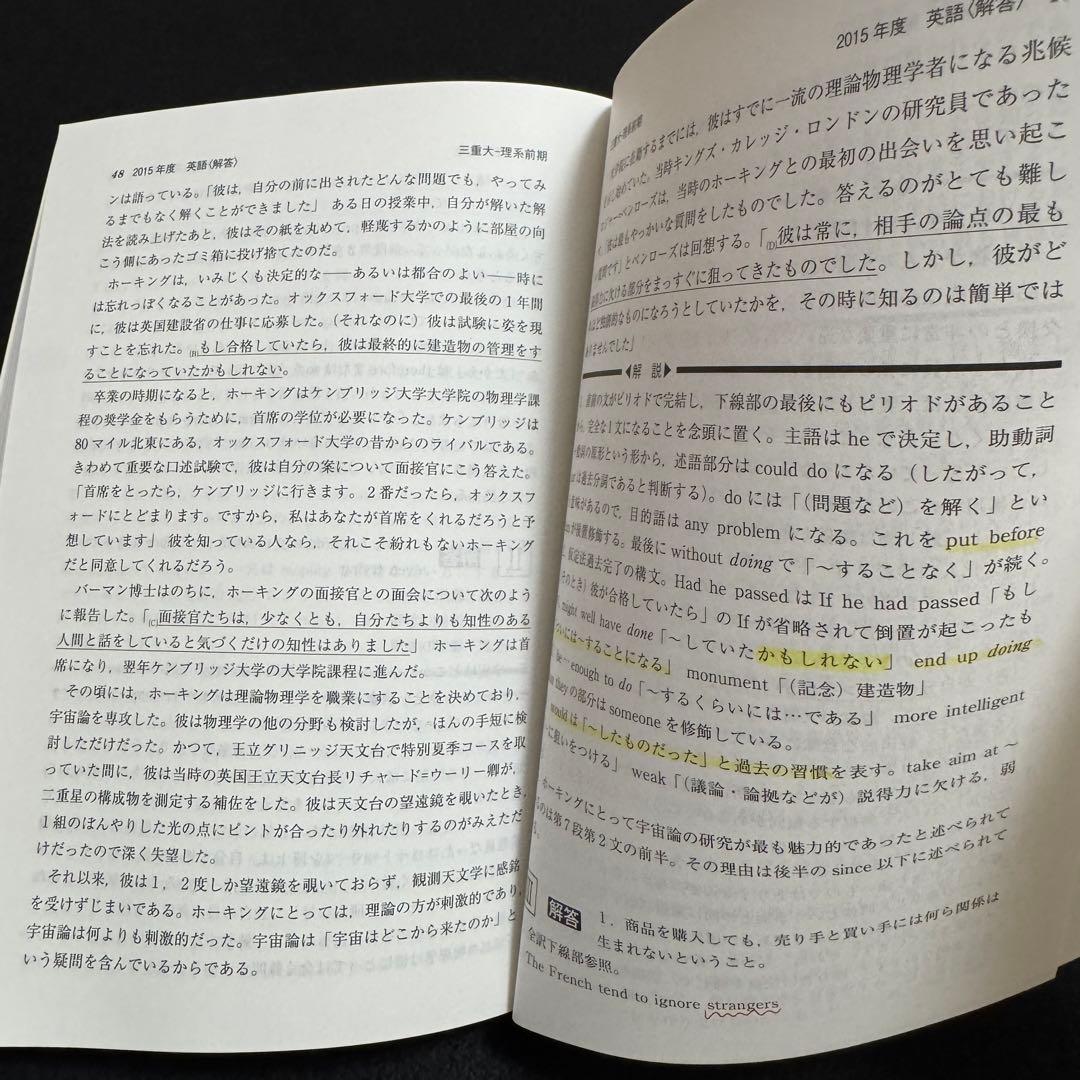 48 2015年度 英語〈解答〉 三重大-理系前期
ンは語っている。「彼は，自分の前に出されたどんな問題でも，やってみ
るまでもなく解くことができました」 ある日の授業中，自分が解いた解
法を読み上げたあと，彼はその紙を丸めて，軽蔑するかのように部屋の向
こう側にあったゴミ箱に投げ捨てたのだ。
ホーキングは，いみじくも決定的な――あるいは都合のよい――時に
は忘れっぽくなることがあった。オックスフォード大学での最後の1年間
に，彼は英国建設省の仕事に応募した。（それなのに）彼は試験に姿を現
すことを忘れた。(B)もし合格していたら，彼は最終的に建造物の管理をす
ることになっていたかもしれない。
卒業の時期になると，ホーキングはケンブリッジ大学大学院の物理学課
程の奨学金をもらうために，首席の学位が必要になった。ケンブリッジは
80マイル北東にある，オックスフォード大学の昔からのライバルである。
きわめて重要な口述試験で，彼は自分の案について面接官にこう答えた。
「首席をとったら，ケンブリッジに行きます。2番だったら，オックスフ
ォードにとどまります。ですから，私はあなたが首席をくれるだろうと予
想しています」 彼を知っている人なら，それこそ紛れもないホーキング
だと同意してくれるだろう。
バーマン博士はのちに，ホーキングの面接官との面会について次のよう
に報告した。「(C)面接官たちは，少なくとも，自分たちよりも知性のある
人間と話をしていると気づくだけの知性はありました」 ホーキングは首
席になり，翌年ケンブリッジ大学の大学院課程に進んだ。
その頃には，ホーキングは理論物理学を職業にすることを決めており，
宇宙論を専攻した。彼は物理学の他の分野も検討したが，ほんの手短に検
討しただけだった。かつて，王立グリニッジ天文台で特別夏季コースを取
っていた間に，彼は当時の英国王立天文台長リチャード=ウーリー卿が，
二重星の構成物を測定する補佐をした。彼は天文台の望遠鏡を覗いたとき，
1組のぼんやりした光の点にピントが合ったり外れたりするのがみえただ
けだったので深く失望した。
それ以来，彼は1，2度しか望遠鏡を覗いておらず，観測天文学に感銘
を受けずじまいである。ホーキングにとっては，理論の方が刺激的であり，
宇宙論は何よりも刺激的だった。宇宙論は「宇宙はどこから来たのか」と
いう疑問を含んでいるからである。
三重大-理系前期 2015年度 英語〈解答〉
するまでには，彼はすでに一流の理論物理学者になる兆候
始めていた。当時キングズ・カレッジ・ロンドンの研究員であった
ペンローズは，当時のホーキングとの最初の出会いを思い起こ
彼は最もやっかいな質問をしたものでした。答えるのがとても難し
質問です」とペンローズは回想する。「(D)彼は常に，相手の論点の最も
に欠ける部分をまっすぐに狙ってきたものでした。しかし，彼がど
ほど独創的なものになろうとしていたかを，その時に知るのは簡単では
ありませんでした」
◀解 説▶
直前の文がピリオドで完結し，下線部の最後にもピリオドがあること
から，完全な1文になることを念頭に置く。主語はheで決定し，助動詞
動詞の原形という形から，述語部分はcould doになる（したがって，
は過去分詞であると判断する）。doには「（問題など）を解く」とい
意味があるので，目的語はany problemになる。これをput before
が後置修飾する。最後にwithout doingで「～することなく」が続く。
仮定法過去完了の構文。Had he passedはIf he had passed「もし
（そのとき）彼が合格していたら」のIfが省略されて倒置が起こったも
might well have done「～していたかもしれない」 end up doing
ついには～することになる」 monument「（記念）建造物」
enough to do「～するくらいには…である」 more intelligent
theyの部分はsomeoneを修飾している。
wouldは「～したものだった」と過去の習慣を表す。take aim at ～
に狙いをつける」 weak「（議論・論拠などが）説得力に欠ける，弱
ホーキングにとって宇宙論の研究が最も魅力的であったと述べられて
るのは第7段第2文の前半。その理由は後半のsince以下に述べられて
II 解答 1．商品を購入しても，売り手と買い手には何ら関係は
生まれないということ。
全訳下線部参照。
The French tend to ignore strangers